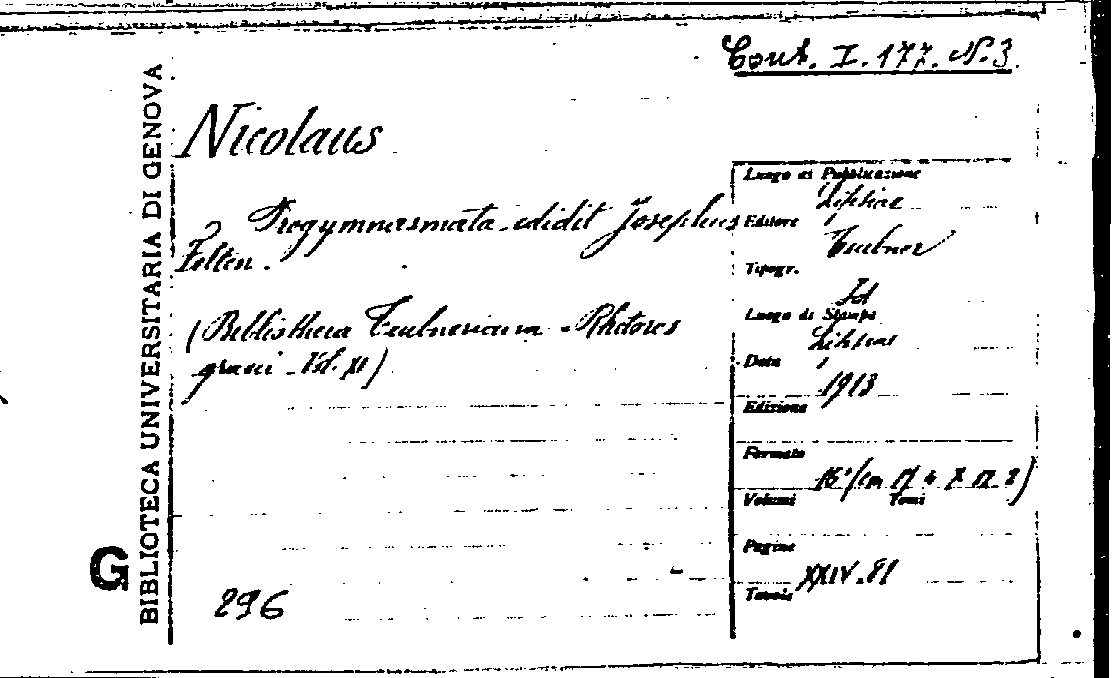 Cont. I. 177. N. 3
BIBLIOTECA UNIVERSITARIA DI GENOVA
G
Nicolaus
Progymnasmata edidit Josephus
Felten.
(Bibliotheca Teubneriana - Rhetores
graeci - Vol. XI)
296
Luogo di Pubblicazione
Lipsiae
Editore
Teubner
Tipogr.
Id
Luogo di Stampa
Lipsiae
Data
1913
Edizione
Formato
16° (cm 17
Volumi Tomi
Pagine
XXIV-81
Tavole